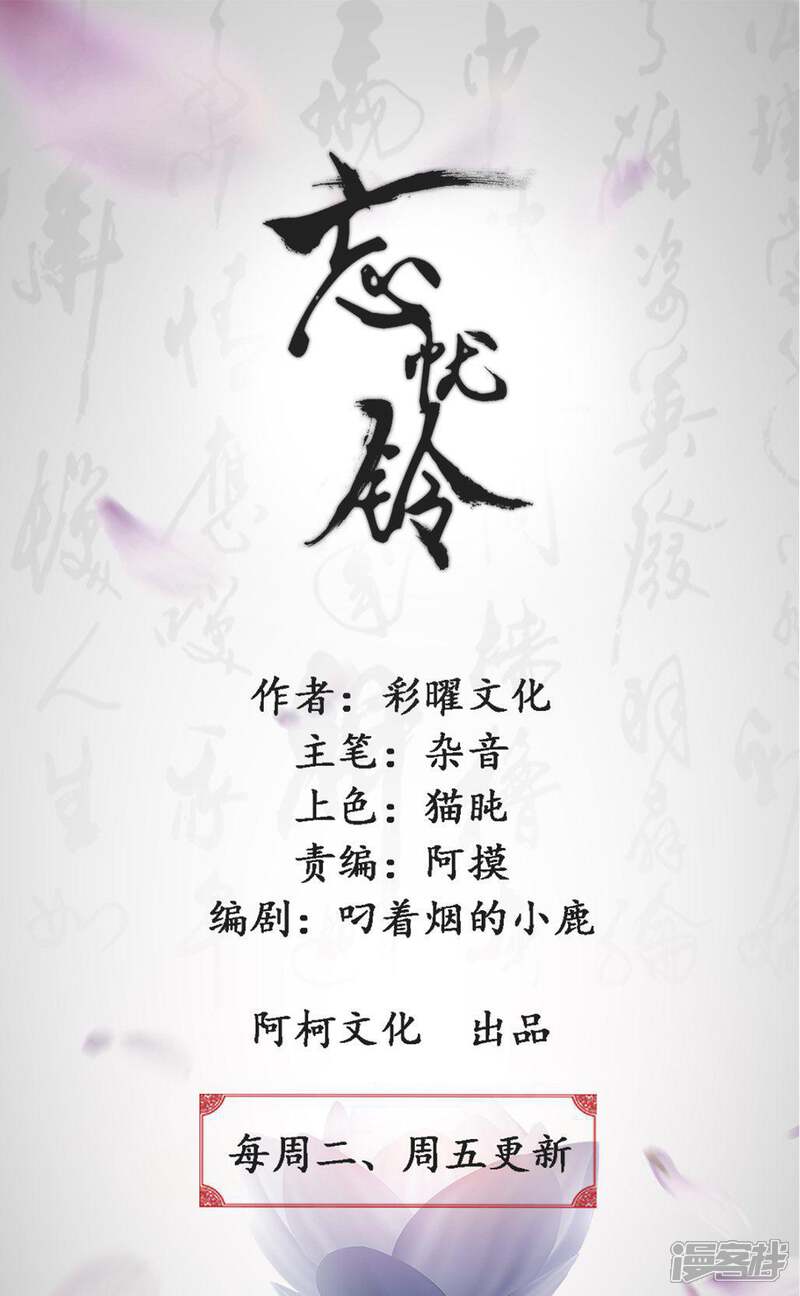 忘忧铃
作者：彩曜文化
主笔：杂音
上色：猫盹
责编：阿摸
编剧：叼着烟的小鹿
阿柯文化 出品
每周二、周五更新
漫客栈